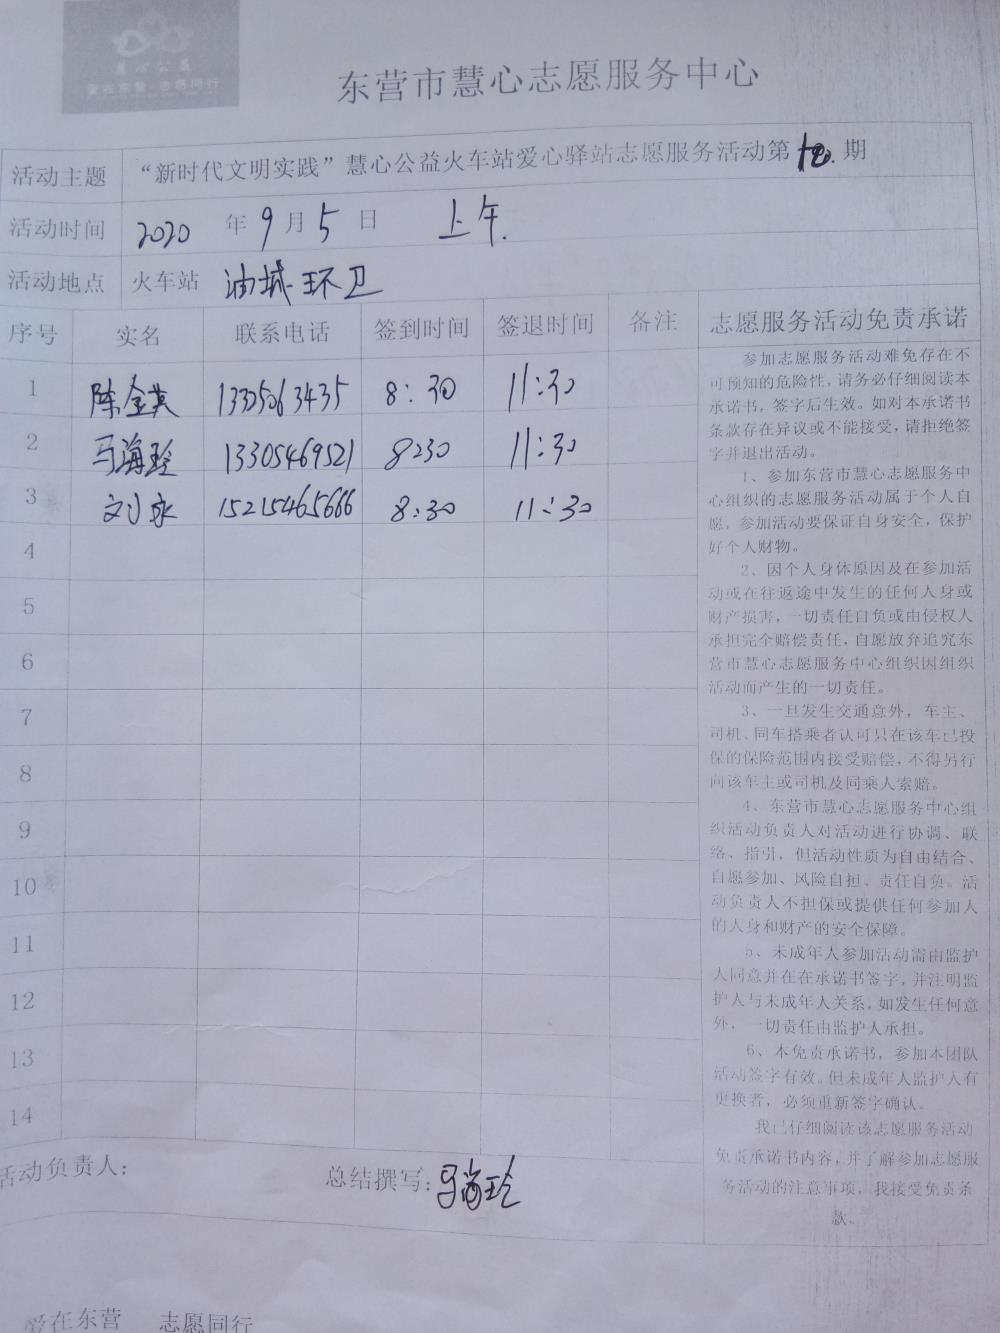 慧心公益
爱在东营 志愿同行
东营市慧心志愿服务中心
活动主题 “新时代文明实践”慧心公益火车站爱心驿站志愿服务活动第 期
活动时间 2020 年 9 月 5 日 上午.
活动地点 火车站 油城环卫
序号 实名 联系电话 签到时间 签退时间 备注 志愿服务活动免责承诺
1 陈金英 13305063435 8:30 11:30
2 马海玲 13305469521 8:30 11:30
3 刘永 15215465666 8:30 11:30
4
5
6
7
8
9
10
11
12
13
14
参加志愿服务活动难免存在不
可预知的危险性,请务必仔细阅读本
承诺书,签字后生效。如对本承诺书
条款存在异议或不能接受,请拒绝签
字并退出活动。
1、参加东营市慧心志愿服务中
心组织的志愿服务活动属于个人自
愿,参加活动要保证自身安全,保护
好个人财物。
2、因个人身体原因及在参加活
动或在往返途中发生的任何人身或
财产损害,一切责任自负或由侵权人
承担完全赔偿责任,自愿放弃追究东
营市慧心志愿服务中心组织因组织
活动而产生的一切责任。
3、一旦发生交通意外,车主、
司机、同车搭乘者认可只在该车已投
保的保险范围内接受赔偿,不得另行
向该车主或司机及同乘人索赔。
4、东营市慧心志愿服务中心组
织活动负责人对活动进行协调、联
络、指引,但活动性质为自由结合、
自愿参加、风险自担、责任自负。活
动负责人不担保或提供任何参加人
的人身和财产的安全保障。
5、未成年人参加活动需由监护
人同意并在在承诺书签字,并注明监
护人与未成年人关系,如发生任何意
外,一切责任由监护人承担。
6、本免责承诺书,参加本团队
活动签字有效。但未成年人监护人有
更换者,必须重新签字确认。
我已仔细阅读该志愿服务活动
免责承诺书内容,并了解参加志愿服
务活动的注意事项,我接受免责条
款。
活动负责人: 总结撰写:马海玲
爱在东营 志愿同行